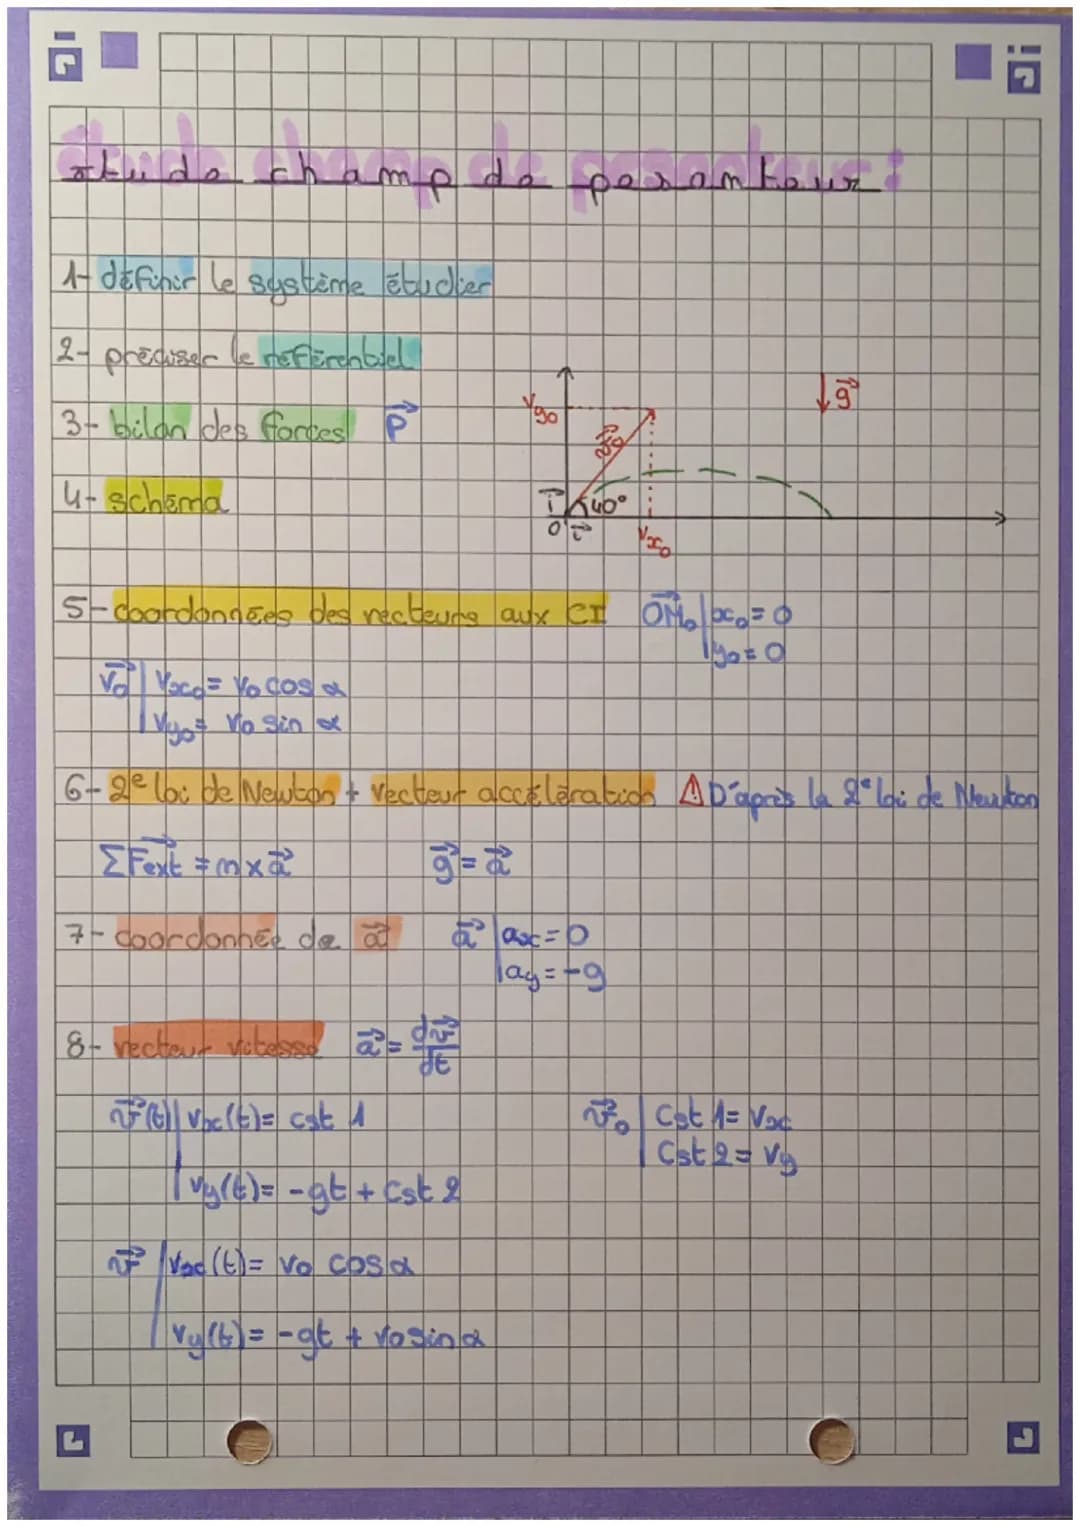 étude champ de pesanteur :
1- définir le système étudier
2- préciser le référentiel
3- bilan des forces P⃗
4- schéma
Vy₀
v⃗₀
g⃗
40°
O i⃗
Vx₀
5- coordonnées des vecteurs aux CI OM⃗₀ | x₀ = 0
y₀ = 0
v₀⃗ | Vx₀ = V₀ cos α
Vy₀ = V₀ sin α
6- 2e loi de Newton + vecteur accélération ⚠ D'après la 2e loi de Newton
ΣF⃗ext = m x a⃗ g⃗ = a⃗
7- coordonnée de a⃗ a⃗ | ax = 0
ay = -g
8- vecteur vitesse a⃗ = dv⃗/dt
v⃗(t) | Vx(t) = cst 1 v⃗₀ | Cst 1 = Vx
Cst 2 = Vy
Vy(t) = -gt + Cst 2
v⃗ | Vx(t) = V₀ cos α
Vy(t) = -gt + V₀ sin α